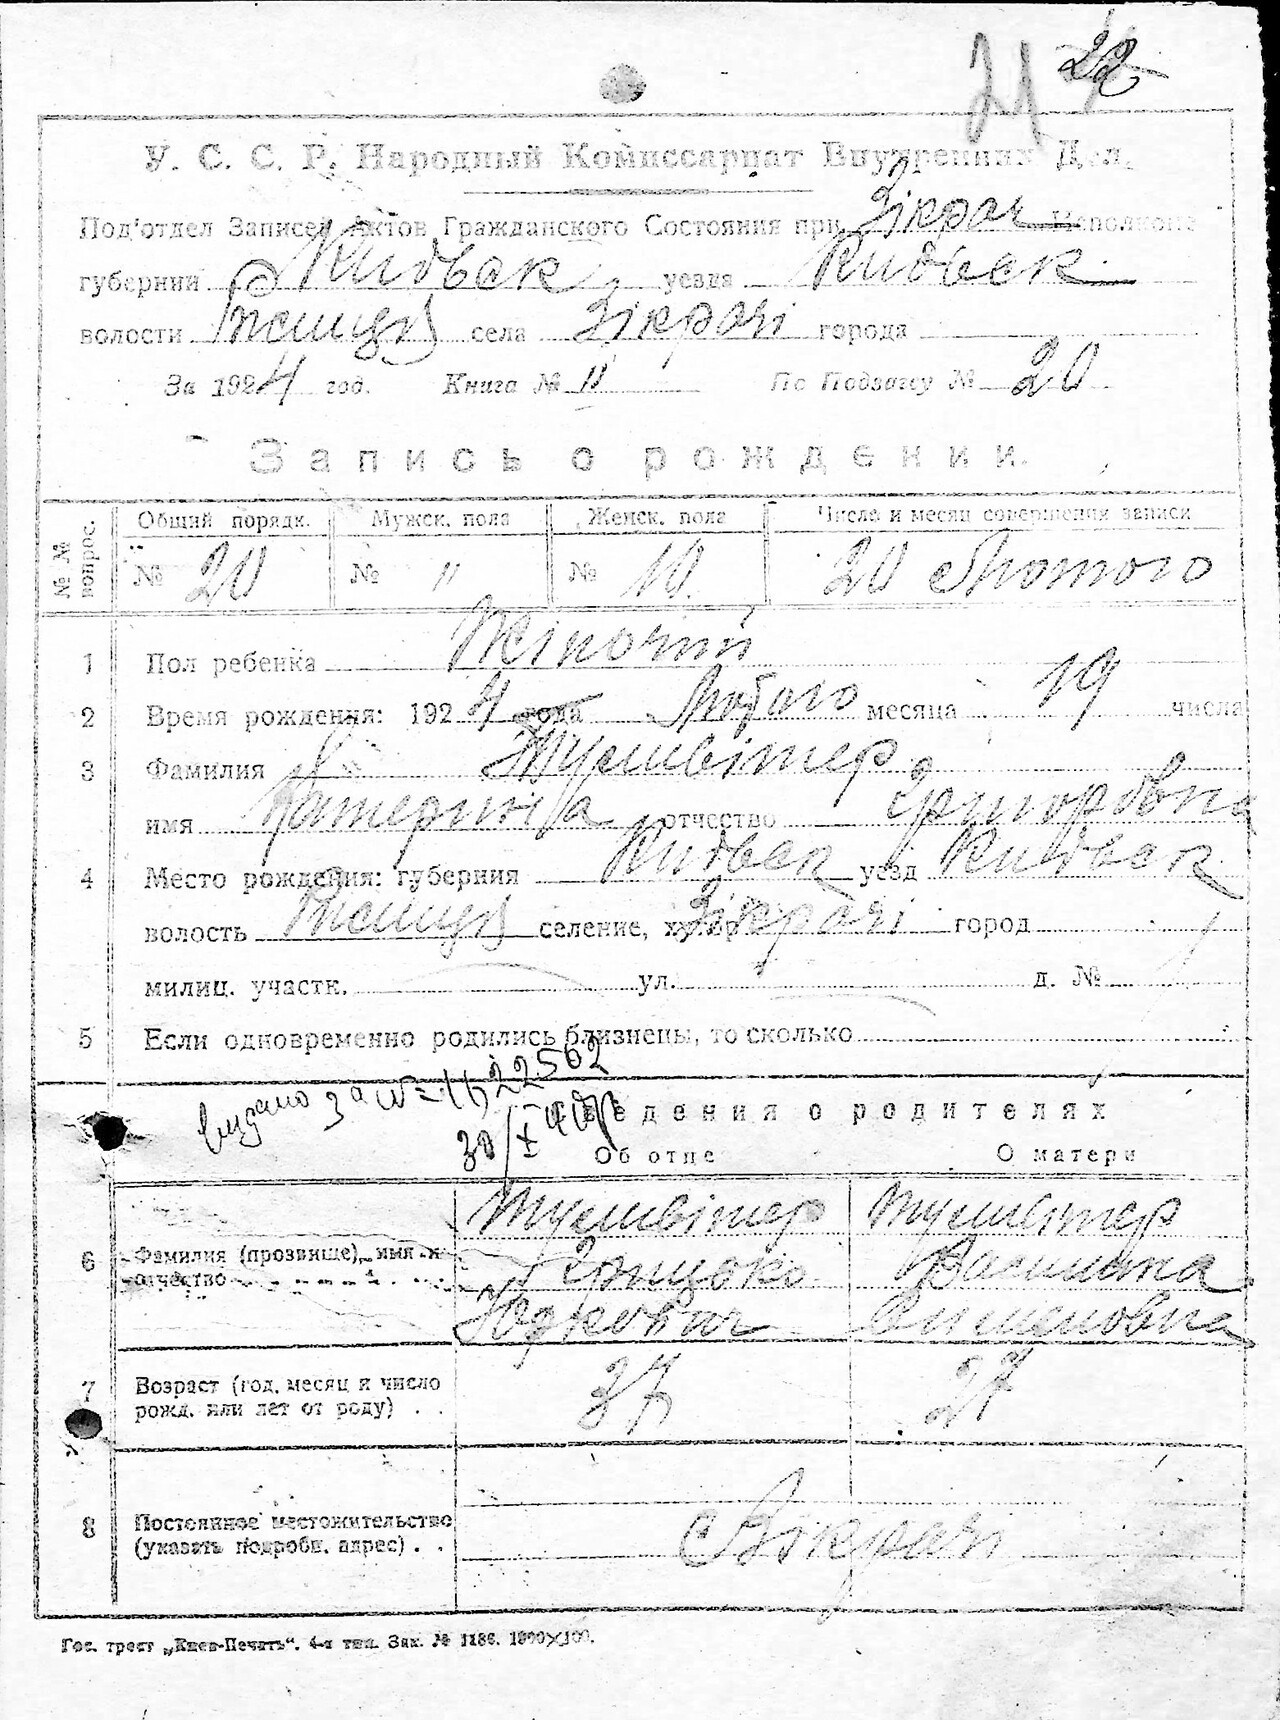 22
У. С. С. Р. Народный Комиссариат Внутренних Дел.
Под'отдел Записей Актов Гражданского Состояния при Зікрач Исполкоме
губернии Київськ уезда Київськ
волости села Зікрачі города
За 1924 год. Книга № " По Подзагу № 20
Запись о рождении.
№ № вопрос. Общий порядк. Мужск. пола Женск. пола Число и месяц совершения записи
№ 20 № " № 10 20 Лютого
1 Пол ребенка Жіночий
2 Время рождения: 1924 года Лютого месяца 19 числа
3 Фамилия Тусивітер
имя Катерина отчество Григорівна
4 Место рождения: губерния Київськ уезд Київськ
волость селение, хутор Зікрачі город
милиц. участк. ул. д. №
5 Если одновременно родились близнецы, то сколько
видано за № 22562
Сведения о родителях
30/X
Об отце О матери
6 Фамилия (прозвище), имя и отчество
Тусивітер Тусивітер
Грицько Василина
Юркович Семеновна
7 Возраст (год, месяц и число рожд. или лет от роду) . . 37 27
8 Постоянное местожительство (указать подробн. адрес) . . С Зікрачі
Гос. трест „Киев-Печать". 4-я тип. Зак. № 1186. 1000×100.